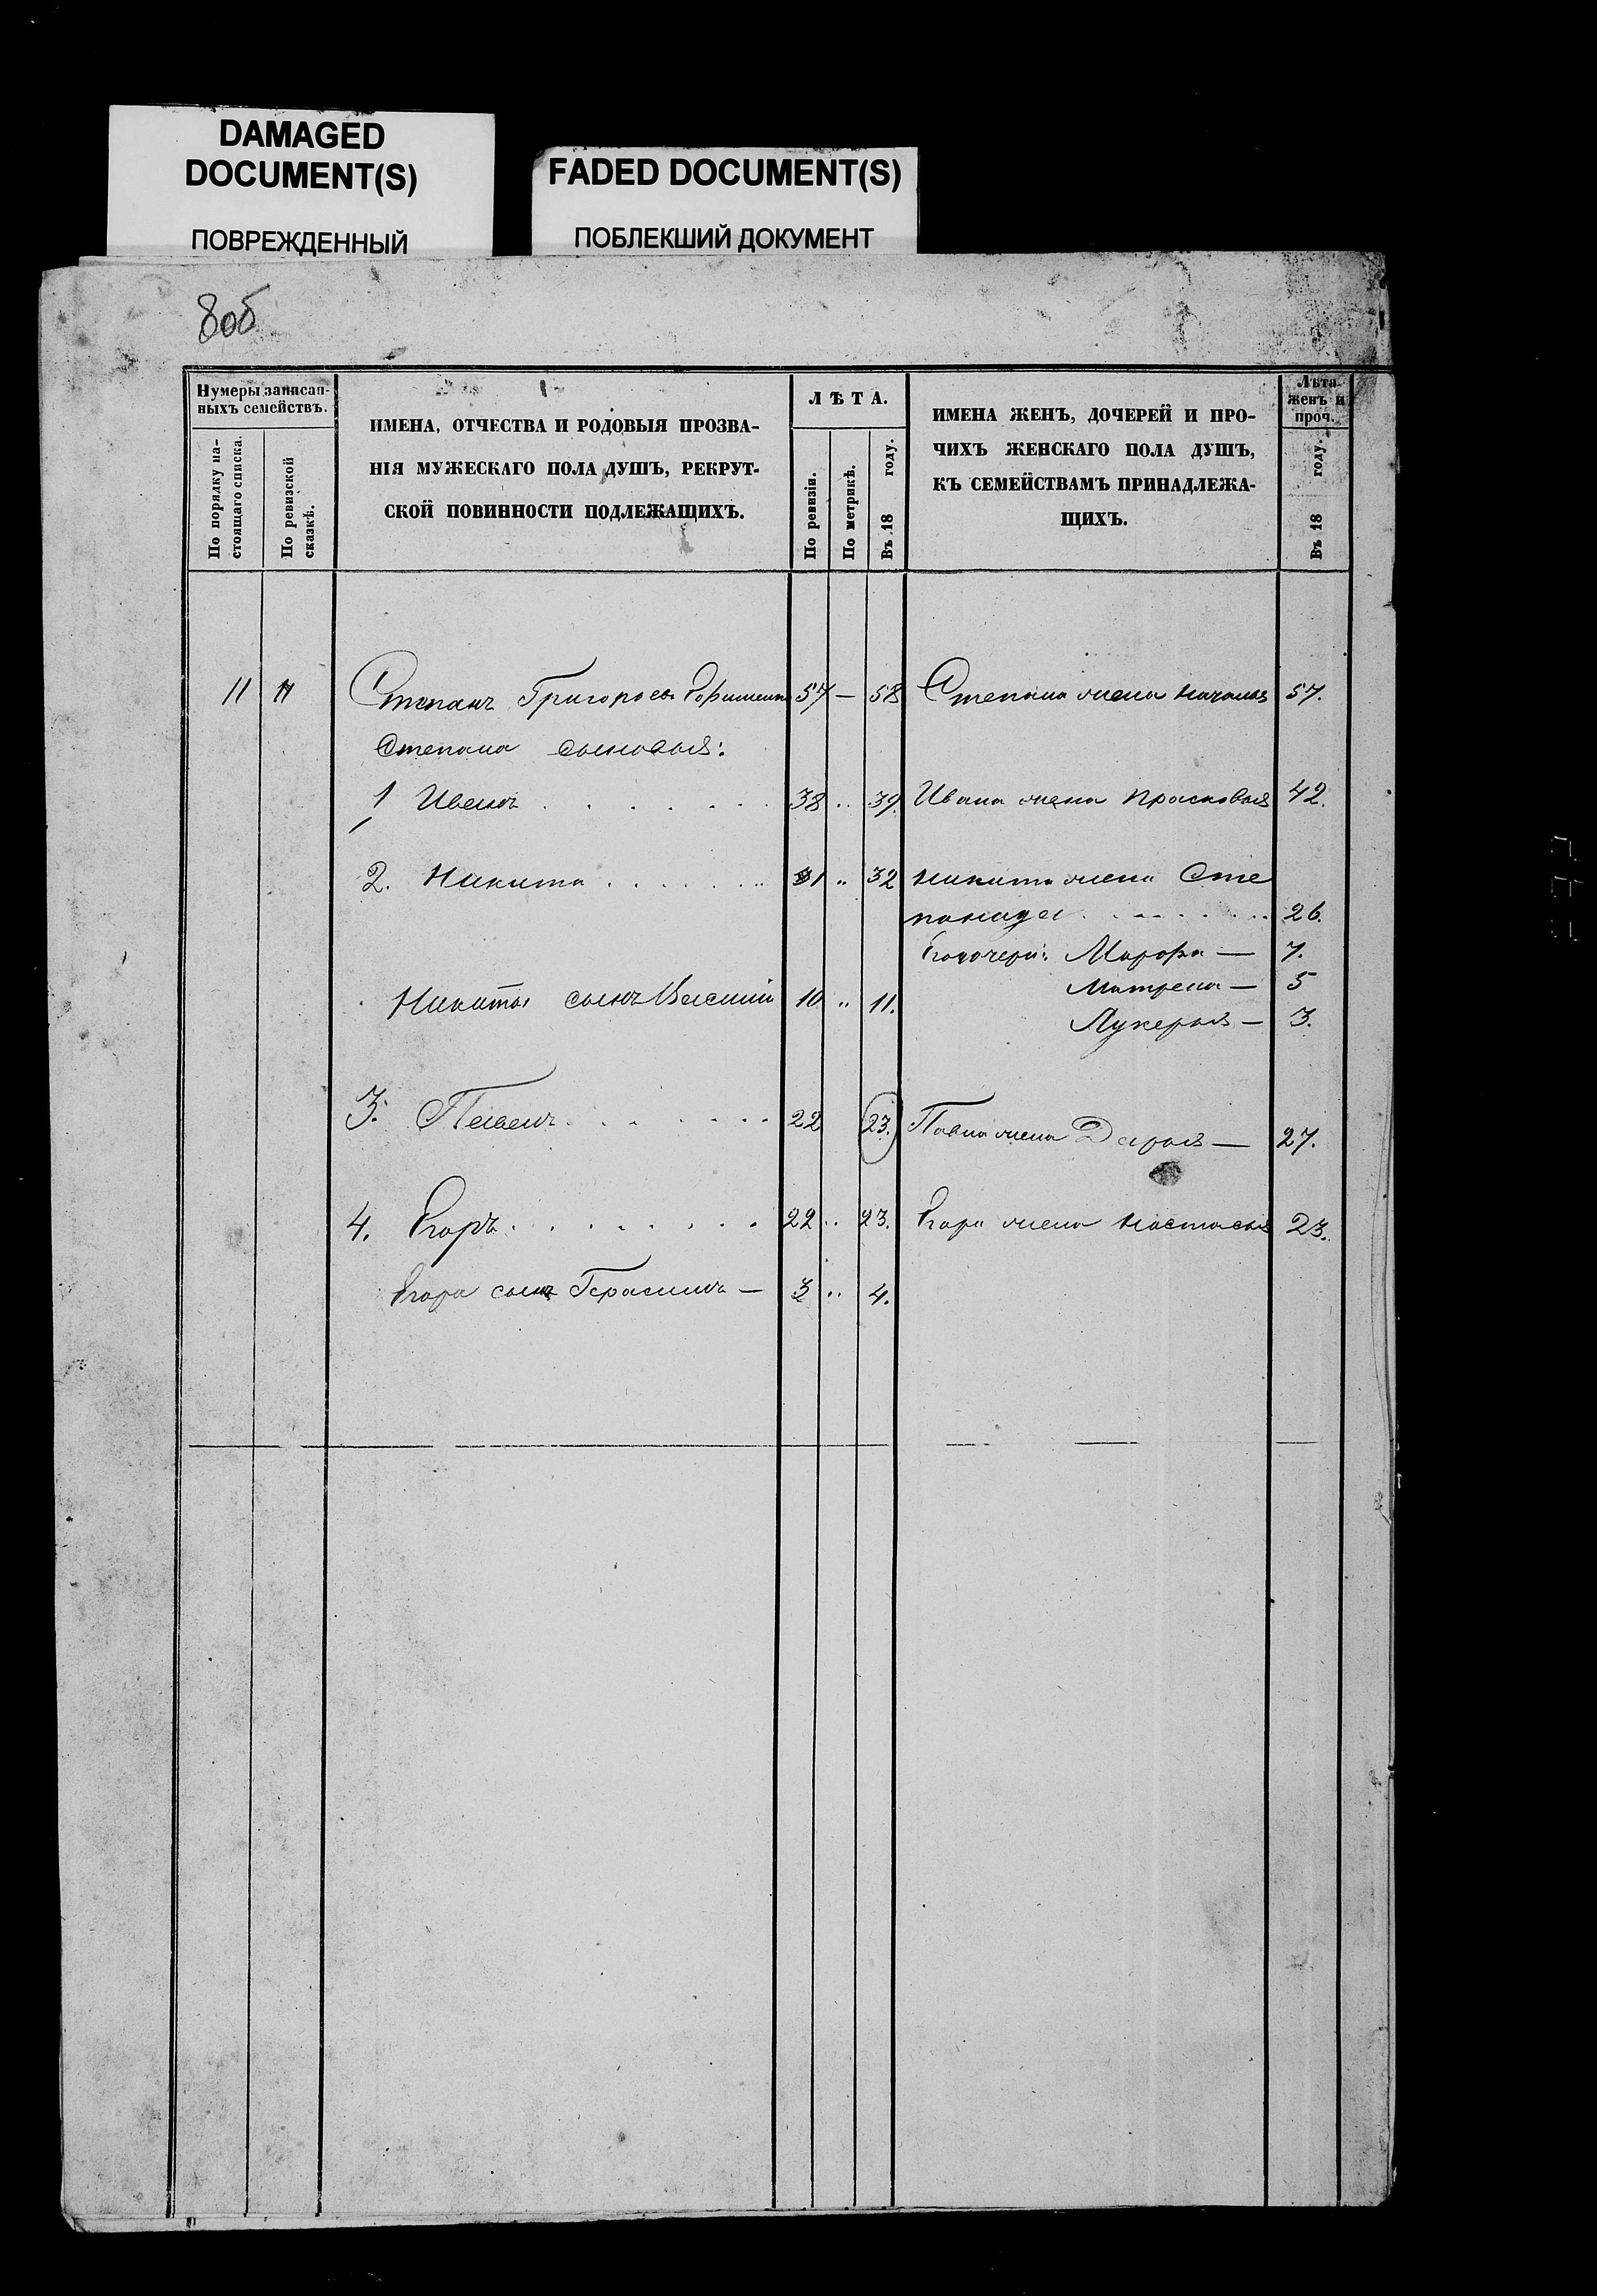 DAMAGED
DOCUMENT(S)
ПОВРЕЖДЕННЫЙ
FADED DOCUMENT(S)
ПОБЛЕКШИЙ ДОКУМЕНТ
8об
Нумеры записан-
ныхъ семействъ.
По порядку на-
стоящаго списка.
По ревизской
сказкѣ.
ИМЕНА, ОТЧЕСТВА И РОДОВЫЯ ПРОЗВА-
НІЯ МУЖЕСКАГО ПОЛА ДУШЪ, РЕКРУТ-
СКОЙ ПОВИННОСТИ ПОДЛЕЖАЩИХЪ.
ЛѢТА.
По ревизіи.
По метрикѣ.
Въ 18 году.
ИМЕНА ЖЕНЪ, ДОЧЕРЕЙ И ПРО-
ЧИХЪ ЖЕНСКАГО ПОЛА ДУШЪ,
КЪ СЕМЕЙСТВАМЪ ПРИНАДЛЕЖА-
ЩИХЪ.
Лѣта
женъ и
проч.
Въ 18 году.
11 11 Степанъ Григорьевъ 57 — 58 Степана жена 57.
Степана сыновья:
1 Иванъ 38 „ 39. Ивана жена Прасковья 42.
2. Никита 31 „ 32 Никиты жена Сте
панида 26.
дочери: Марфа — 7.
Матрена — 5
Никиты сынъ Василий 10 „ 11.
Лукерья — 3.
3. Павелъ 22 23. Павла жена Дарья — 27.
4. Егоръ 22 „ 23. Егора жена Настасья 23.
Егора сынъ Герасимъ — 3 „ 4.